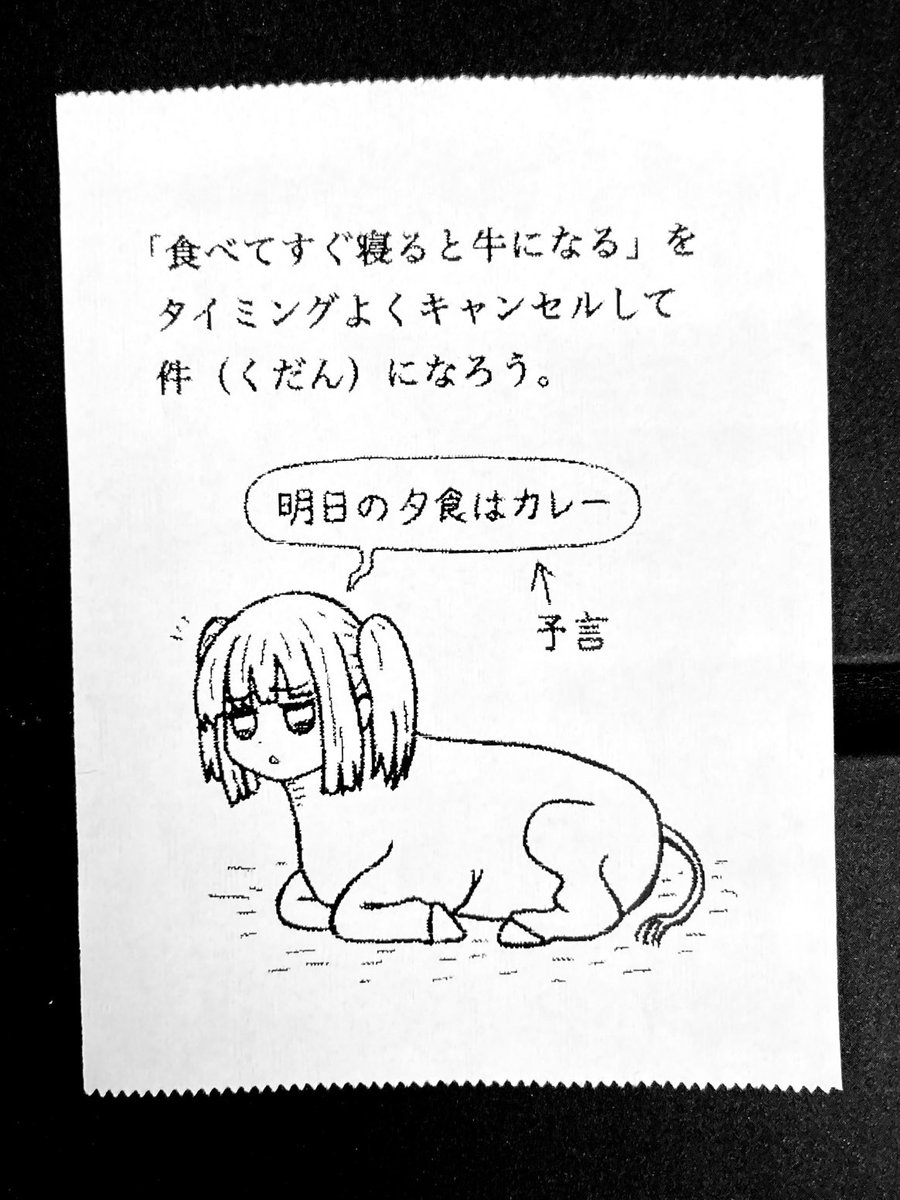 「食べてすぐ寝ると牛になる」を
タイミングよくキャンセルして
件（くだん）になろう。
明日の夕食はカレー
↑
予言